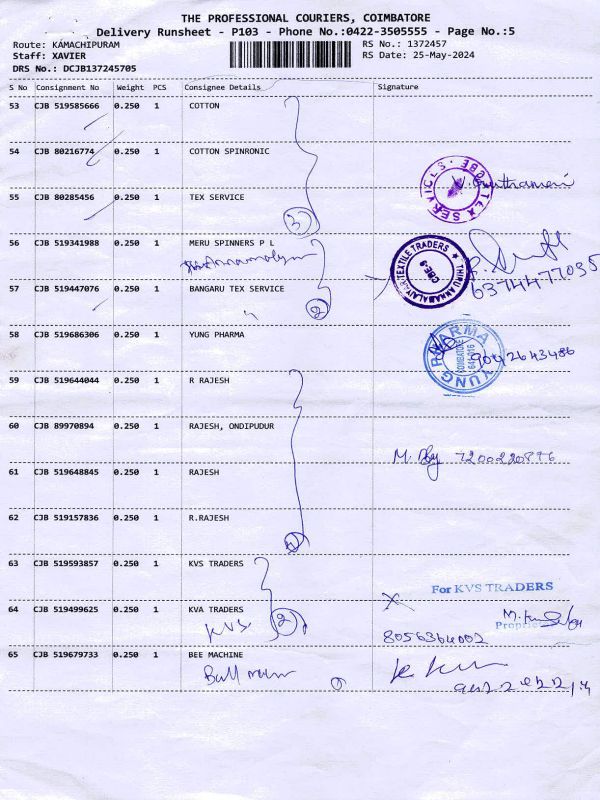 THE PROFESSIONAL COURIERS, COIMBATORE
Delivery Runsheet - P103 - Phone No.:0422-3505555 - Page No.:5
Route: KAMACHIPURAM
Staff: XAVIER
DRS No.: DCJB137245705
RS No.: 1372457
RS Date: 25-May-2024
S No Consignment No Weight PCS Consignee Details Signature
53 CJB 519585666 0.250 1 COTTON
54 CJB 80216774 0.250 1 COTTON SPINRONIC
TEX SERVICES · CBE ·
55 CJB 80285456 0.250 1 TEX SERVICE
3
56 CJB 519341988 0.250 1 MERU SPINNERS P L
THIRU ANNAMALAIYAR TEXTILE TRADERS ★
CBE-9
6374477035
57 CJB 519447076 0.250 1 BANGARU TEX SERVICE
2
58 CJB 519686306 0.250 1 YUNG PHARMA
YUNG PHARMA
COIMBATORE
9042643486
59 CJB 519644044 0.250 1 R RAJESH
60 CJB 89970894 0.250 1 RAJESH, ONDIPUDUR
61 CJB 519648845 0.250 1 RAJESH
62 CJB 519157836 0.250 1 R.RAJESH
63 CJB 519593857 0.250 1 KVS TRADERS
For KVS TRADERS
64 CJB 519499625 0.250 1 KVA TRADERS
KVS 2
8056364002
65 CJB 519679733 0.250 1 BEE MACHINE
Ball